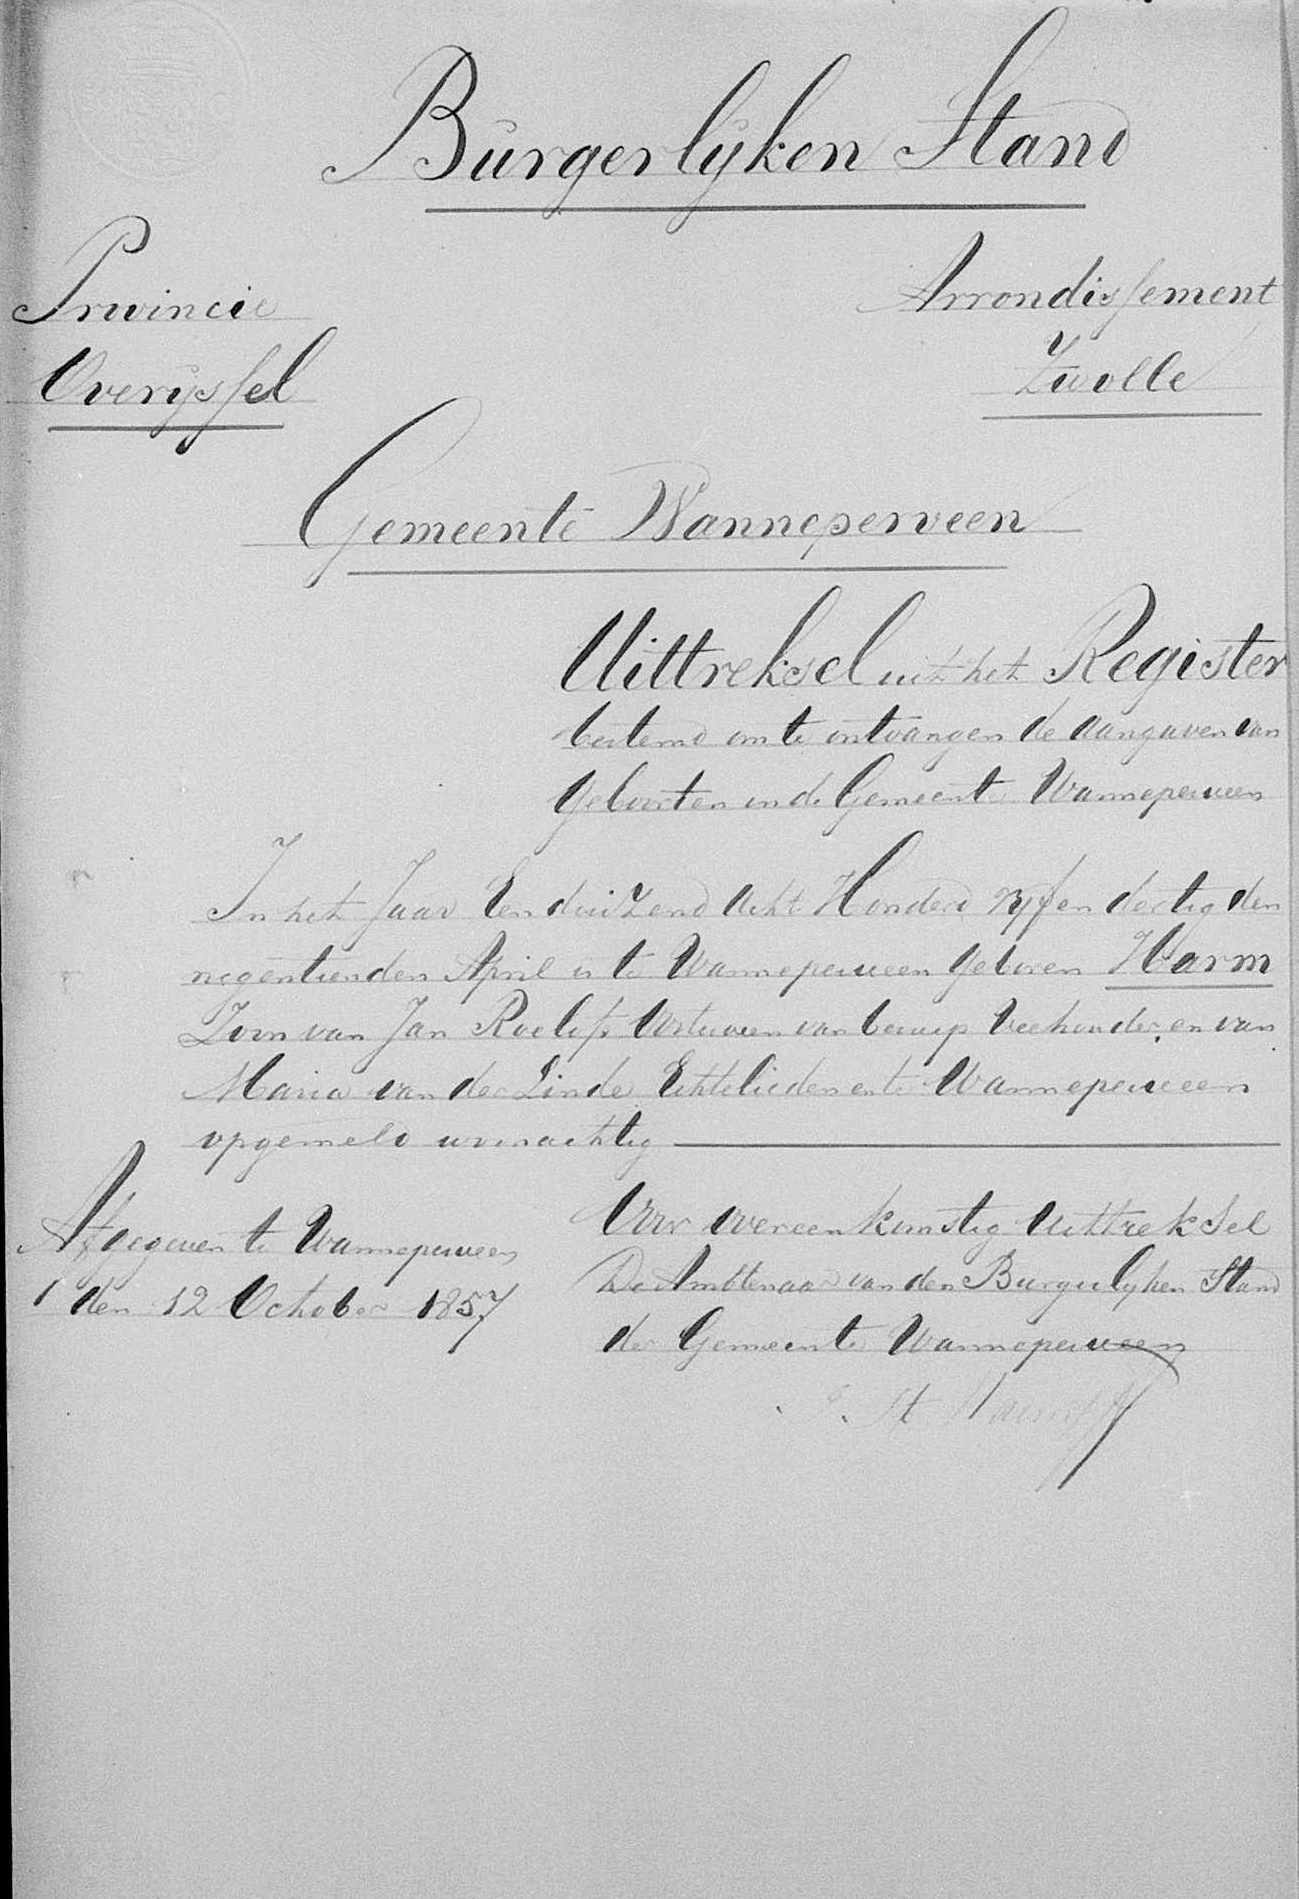 Burgerlijken Stand
Provincie
Overijssel
Arrondissement
Zwolle
Gemeente Wanneperveen
Uittreksel uit het Register
bestemd om te ontvangen de aangaven van
Geboorten in de Gemeente Wanneperveen
In het Jaar Een duizend Acht Honderd vyf en dertig den
negentienden April is te Wanneperveen geboren Harm
Zoon van Jan Roelofs van beroep Veehouder en van
Maria van der Linde Echtelieden en te Wanneperveen
opgemeld woonachtig
Afgegeven te Wanneperveen
den 12 October 1857
Voor overeenkomstig Uittreksel
De Ambtenaar van den Burgerlyken Stand
der Gemeente Wanneperveen